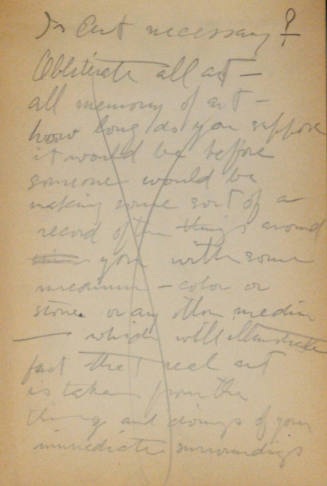 Is Art necessary?
Obliterate all art —
all memory of art —
how long do you suppose
it would be before
someone would be
making some sort of a
record of the things around
you with some
medium — color or
stone or any other medium
— which will illustrate
fact that real art
is taken from the
things and doings of your
immediate surroundings